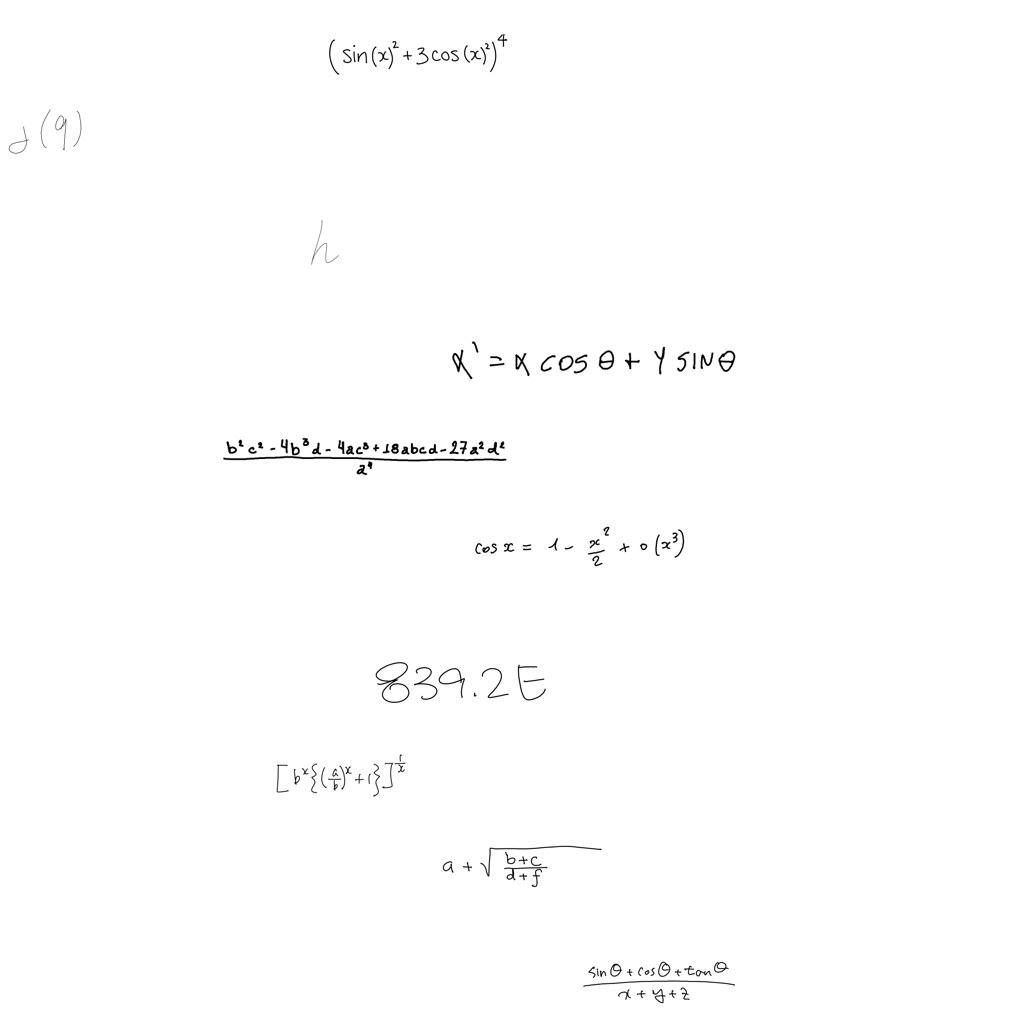 (sin(x)² + 3cos(x)²)⁴
d(9)
h
x' = x COS θ + Y SIN θ
\frac{b²c² - 4b³d - 4ac³ + 18abcd - 27a²d²}{a⁴}
cos x = 1 - \frac{x²}{2} + o(x³)
839.2E
[b^x{(\frac{a}{b})^x + 1}]^{\frac{1}{x}}
a + \sqrt{\frac{b+c}{d+f}}
\frac{sin θ + cos θ + tan θ}{x + y + z}